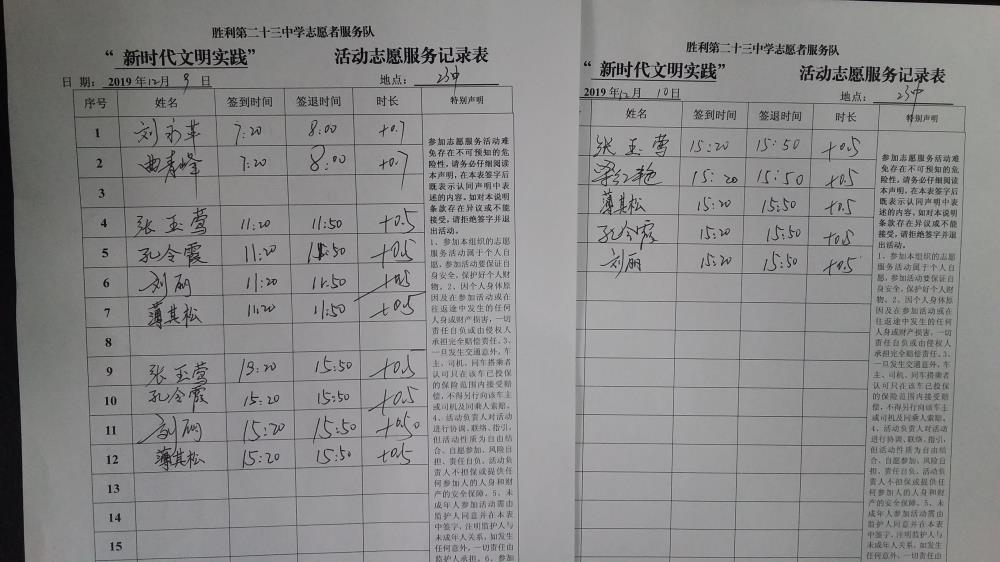 胜利第二十三中学志愿者服务队
“新时代文明实践” 活动志愿服务记录表
日 期: 2019 年 12 月 9 日 地点: 23中
序号 姓名 签到时间 签退时间 时长 特别声明
1 刘永革 7:20 8:00 +0.7
2 曲春峰 7:20 8:00 +0.7
3
4 张玉莺 11:20 11:50 +0.5
5 孔令霞 11:20 11:50 +0.5
6 刘丽 11:20 11:50 +0.5
7 薄其松 11:20 11:50 +0.5
8
9 张玉莺 15:20 15:50 +0.5
10 孔令霞 15:20 15:50 +0.5
11 刘丽 15:20 15:50 +0.50
12 薄其松 15:20 15:50 +0.5
13
14
15
参加志愿服务活动难
免存在不可预知的危
险性,请务必仔细阅读
本声明,在本表签字后
既表示认同声明中表
述的内容,如对本说明
条款存在异议或不能
接受,请拒绝签字并退
出活动。
1、参加本组织的志愿
服务活动属于个人自
愿,参加活动要保证自
身安全,保护好个人财
物。2、因个人身体原
因及在参加活动或在
往返途中发生的任何
人身或财产损害,一切
责任自负或由侵权人
承担完全赔偿责任。3、
一旦发生交通意外,车
主、司机、同车搭乘者
认可只在该车已投保
的保险范围内接受赔
偿,不得另行向该车主
或司机及同乘人索赔。
4、活动负责人对活动
进行协调、联络、指引,
但活动性质为自由结
合、自愿参加、风险自
担、责任自负。活动负
责人不担保或提供任
何参加人的人身和财
产的安全保障。5、未
成年人参加活动需由
监护人同意并在本表
中签字,注明监护人与
未成年人关系,如发生
任何意外,一切责任由
监护人承担。6、参加
胜利第二十三中学志愿者服务队
“新时代文明实践” 活动志愿服务记录表
2019 年 12 月 10 日 地点: 23中
姓名 签到时间 签退时间 时长 特别声明
张玉莺 15:20 15:50 +0.5
梁红艳 15:20 15:50 +0.5
薄其松 15:20 15:50 +0.5
孔令霞 15:20 15:50 +0.5
刘丽 15:20 15:50 +0.5
参加志愿服务活动难
免存在不可预知的危
险性,请务必仔细阅读
本声明,在本表签字后
既表示认同声明中表
述的内容,如对本说明
条款存在异议或不能
接受,请拒绝签字并退
出活动。
1、参加本组织的志愿
服务活动属于个人自
愿,参加活动要保证自
身安全,保护好个人财
物。2、因个人身体原
因及在参加活动或在
往返途中发生的任何
人身或财产损害,一切
责任自负或由侵权人
承担完全赔偿责任。3、
一旦发生交通意外,车
主、司机、同车搭乘者
认可只在该车已投保
的保险范围内接受赔
偿,不得另行向该车主
或司机及同乘人索赔。
4、活动负责人对活动
进行协调、联络、指引,
但活动性质为自由结
合、自愿参加、风险自
担、责任自负。活动负
责人不担保或提供任
何参加人的人身和财
产的安全保障。5、未
成年人参加活动需由
监护人同意并在本表
中签字,注明监护人与
未成年人关系,如发生
任何意外,一切责任由